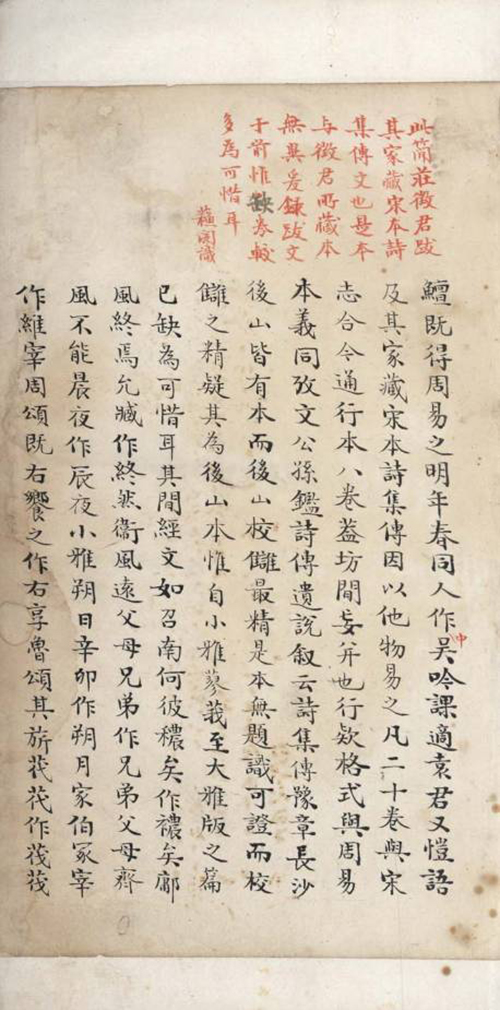 此簡莊徵君跋
其家藏宋本詩
集傳文也是本
与徵君所藏本
無異爰録跋文
于前惟缺卷較
多為可惜耳
蘓閣識
鱣既得周易之明年春同人作吴中吟課適袁君又愷語
及其家藏宋本詩集傳因以他物易之凡二十卷與宋
志合今通行本八卷葢坊間妄并也行欵格式與周易
本義同攷文公孫鑑詩傳遺説叙云詩集傳豫章長沙
後山皆有本而後山校讎最精是本無題識可證而校
讎之精疑其為後山本惟自小雅蓼莪至大雅版之篇
已缺為可惜耳其間經文如召南何彼穠矣作襛矣鄘
風終焉允臧作終然衞風遠父母兄弟作兄弟父母齊
風不能晨夜作辰夜小雅朔日辛卯作朔月家伯冢宰
作維宰周頌既右饗之作右享魯頌其旂茷茷作筏筏